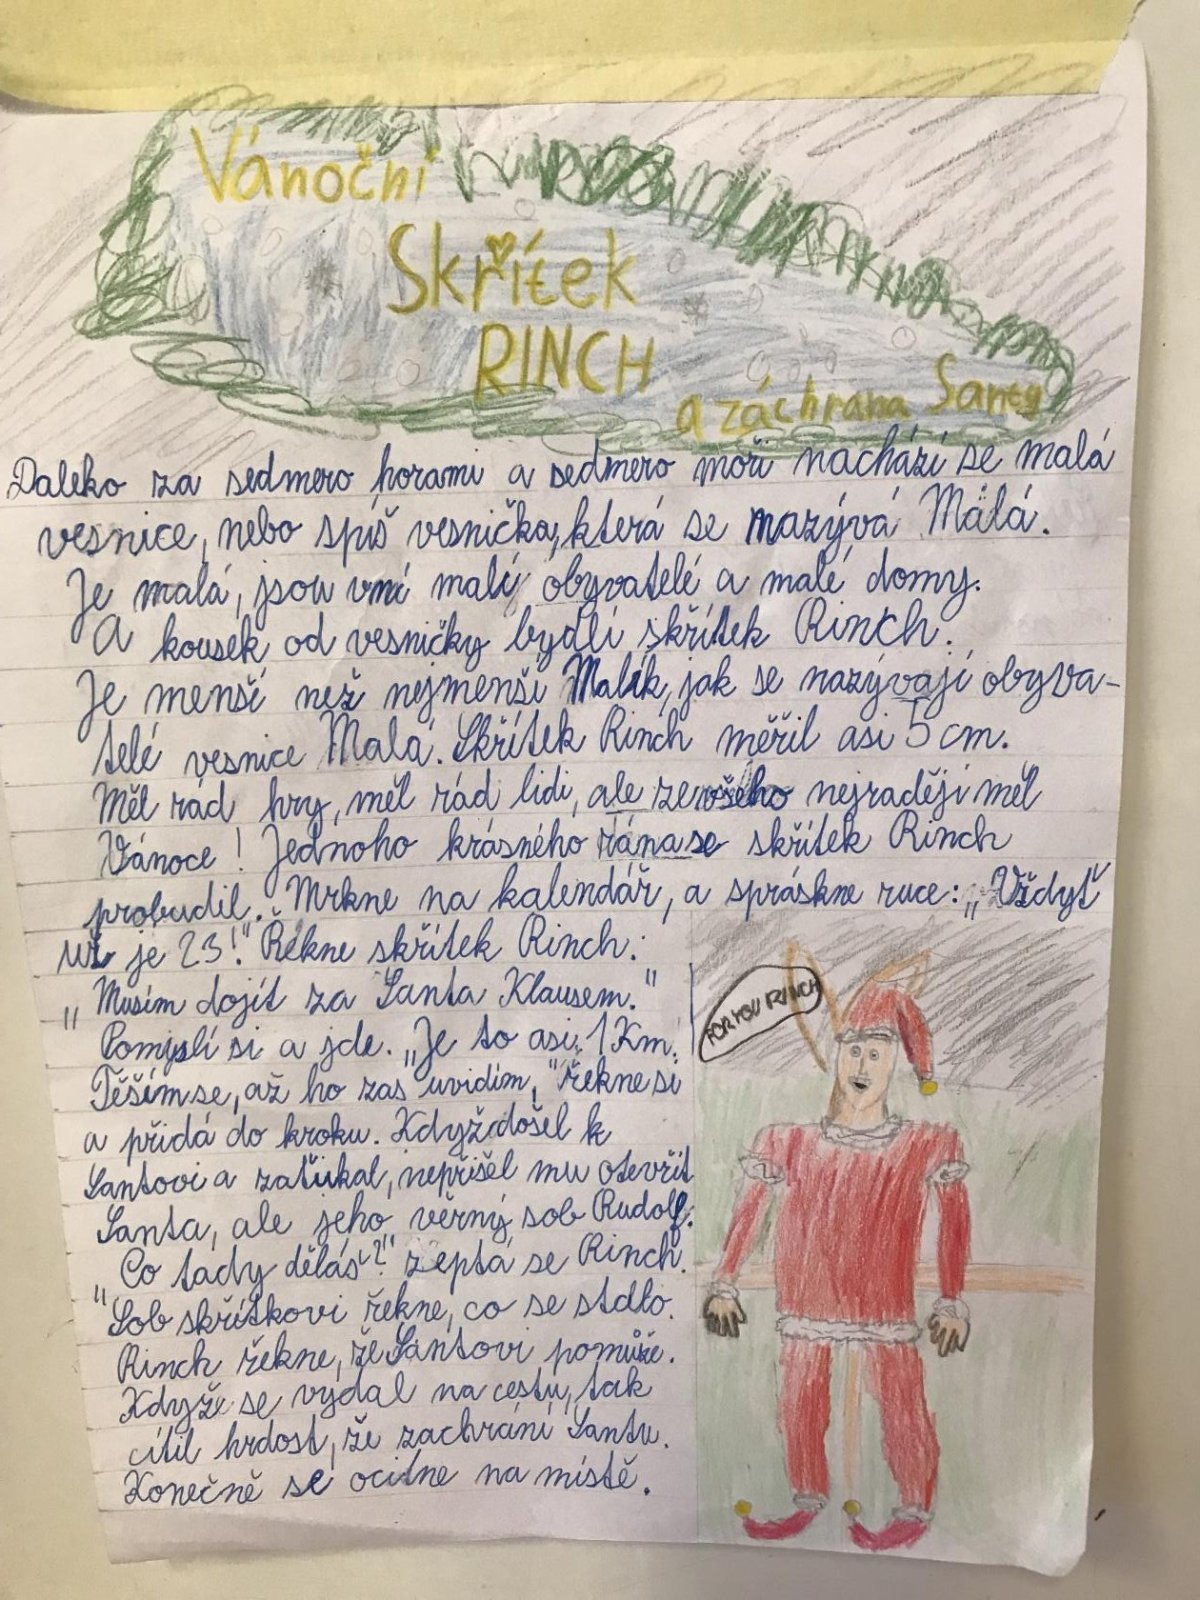 Vánoční
Skřítek
RINCH
a záchrana Santy
Daleko za sedmero horami a sedmero moři nachází se malá
vesnice, nebo spíš vesnička, která se nazývá Malá.
Je malá, jsou v ní malí obyvatelé a malé domy.
A kousek od vesničky bydlí skřítek Rinch.
Je menší než nejmenší Malík, jak se nazývají obyva-
telé vesnice Malá. Skřítek Rinch měřil asi 5 cm.
Měl rád hry, měl rád lidi, ale ze všeho nejraději měl
Vánoce! Jednoho krásného rána se skřítek Rinch
probudil. Mrkne na kalendář, a spráskne ruce: „Vždyť
už je 23!" Řekne skřítek Rinch.
„Musím dojít za Santa Klausem."
Pomyslí si a jde. „Je to asi 1 Km.
Těším se, až ho zas uvidím," řekne si
a přidá do kroku. Když došel k
Santovi a zaťukal, nepřišel mu otevřít
Santa, ale jeho věrný sob Rudolf.
„Co tady děláš?" zeptá se Rinch.
Sob skřítkovi řekne, co se stalo.
Rinch řekne, že Santovi pomůže.
Když se vydal na cestu, tak
cítil hrdost, že zachrání Santu.
Konečně se ocitne na místě.
FOR YOU RINCH